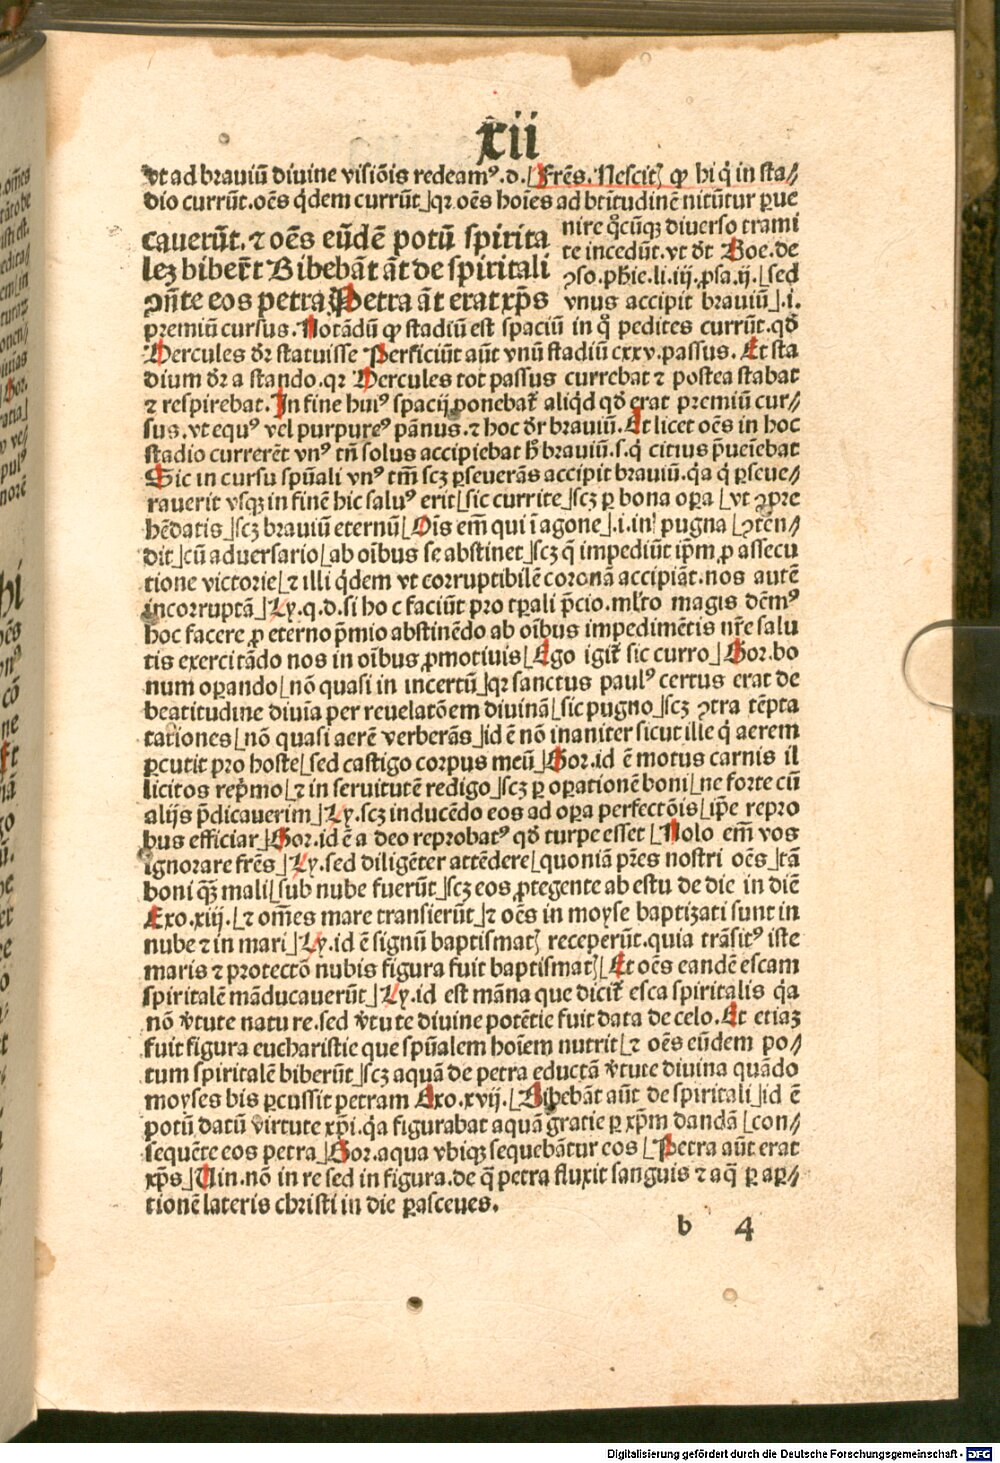 xii
vt ad brauiū diuine visiōis redeamꝰ.d.⌊Frēs. Nescitꝭ ꝙ hi q̇ in sta⸗
dio currūt.oēs q̇dem currūt⌋qꝛ oēs hoīes ad btītudinē nitūtur ꝑue
nire q̊cūqꝫ diuerso trami
te incedūt.vt dt̄ Boe.de
ꝯso.pħie.li.iij.ꝓsa.ij.⌊sed
vnus accipit brauiū⌋.i.
cauerūt.⁊ oēs eūdē potū spirita
leꝫ biber̄t Bibebāt āt de spiritali
ꝯñte eos petra Petra āt erat xp̄s
premiū cursus.Notādū ꝙ stadiū est spaciū in q̊ pedites currūt.qđ
Hercules dr̄ statuisse Perficiūt aūt vnū stadiū cxxv.passus. Et sta
dium dr̄ a stando.qꝛ Hercules tot passus currebat ⁊ postea stabat
⁊ respirebat.In fine huiꝰ spacij ponebat̄ aliq̇d qđ erat premiū cur⸗
sus.vt equꝰ vel purpureꝰ pānus.⁊ hoc dr̄ brauiū.Et licet oēs in hoc
stadio currerēt vnꝰ tn̄ solus accipiebat h̄ brauiū.s.q̇ citius p̄ueīebat
Sic in cursu spūali vnꝰ tm̄ scꝫ ꝑseuerās accipit brauiū.q̇a q̇ ꝑseue⸗
rauerit vsqꝫ in finē hic saluꝰ erit⌊sic currite⌋scꝫ ꝑ bona oꝑa⌊vt ꝯpre
hēdatis⌋scꝫ brauiū eternū⌊Oīs em̄ qui ī agone⌋.i.in pugna⌊ꝯtēn⸗
dit⌋cū aduersario⌊ab oībus se abstinet⌋scꝫ q̄ impediūt ip̄m ꝓ assecu
tione victorie⌊⁊ illi q̇dem vt corruptibilē coronā accipiāt.nos autē
incorruptā⌋Ly.q.d.si ho c faciūt pro tꝑali p̄cio.ml̄to magis dēmꝰ
hoc facere ꝓ eterno p̄mio abstinēdo ab oībus impedimētis nr̄e salu
tis exercitādo nos in oībus ꝓmotiuis⌊Ego igit̄ sic curro⌋Gor.bo
num oꝑando⌊nō quasi in incertū⌋qꝛ sanctus paulꝰ certus erat de
beatitudine diuīa per reuelatōem diuinā⌊sic pugno⌋scꝫ ꝯtra tēpta
tationes⌊nō quasi aerē verberās⌋id ē nō inaniter sicut ille q̇ aerem
ꝑcutit pro hoste⌊sed castigo corpus meū⌋Gor.id ē motus carnis il
licitos rep̄mo⌊⁊ in seruitutē redigo⌋scꝫ ꝑ oꝑationē boni⌊ne forte cū
alijs p̄dicauerim⌋Ly.scꝫ inducēdo eos ad oꝑa perfectōis⌊ip̄e repro
bus efficiar⌋Gor.id ē a deo reprobatꝰ qđ turpe esset⌊Nolo em̄ vos
ignorare frēs⌋Ly.sed diligēter attēdere⌊quoniā p̄res nostri oēs⌋tā
boni qꝫ mali⌊sub nube fuerūt⌋scꝫ eos ꝓtegente ab estu de die in diē
Exo.xiij.⌊⁊ om̄es mare transierūt⌋⁊ oēs in moyse baptizati sunt in
nube ⁊ in mari⌋Ly.id ē signū baptismatꝭ receperūt.quia trāsitꝰ iste
maris ⁊ protectō nubis figura fuit baptismatꝭ⌊Et oēs eandē escam
spiritalē māducauerūt⌋Ly.id est māna que dicit̄ esca spiritalis q̇a
nō v̄tute natu re.sed v̄tu te diuine potētie fuit data de celo.Et etiaꝫ
fuit figura eucharistie que spūalem hoīem nutrit⌊⁊ oēs eūdem po⸗
tum spiritalē biberūt⌋scꝫ aquā de petra eductā v̄tute diuina quādo
moyses bis ꝑcussit petram Exo.xvij.⌊Bibebāt aūt de spiritali⌋id ē
potū datū virtute xp̄i.q̇a figurabat aquā gratie ꝑ xp̄m dandā⌊con⸗
sequēte eos petra⌋Gor.aqua vbiqꝫ sequebātur eos⌊Petra aūt erat
xp̄s⌋Uin.nō in re sed in figura.de q̄ petra fluxit sanguis ⁊ aq̄ ꝑ aꝑ⸗
tionē lateris christi in die ꝑasceues.
b 4
Digitalisierung gefördert durch die Deutsche Forschungsgemeinschaft - DFG